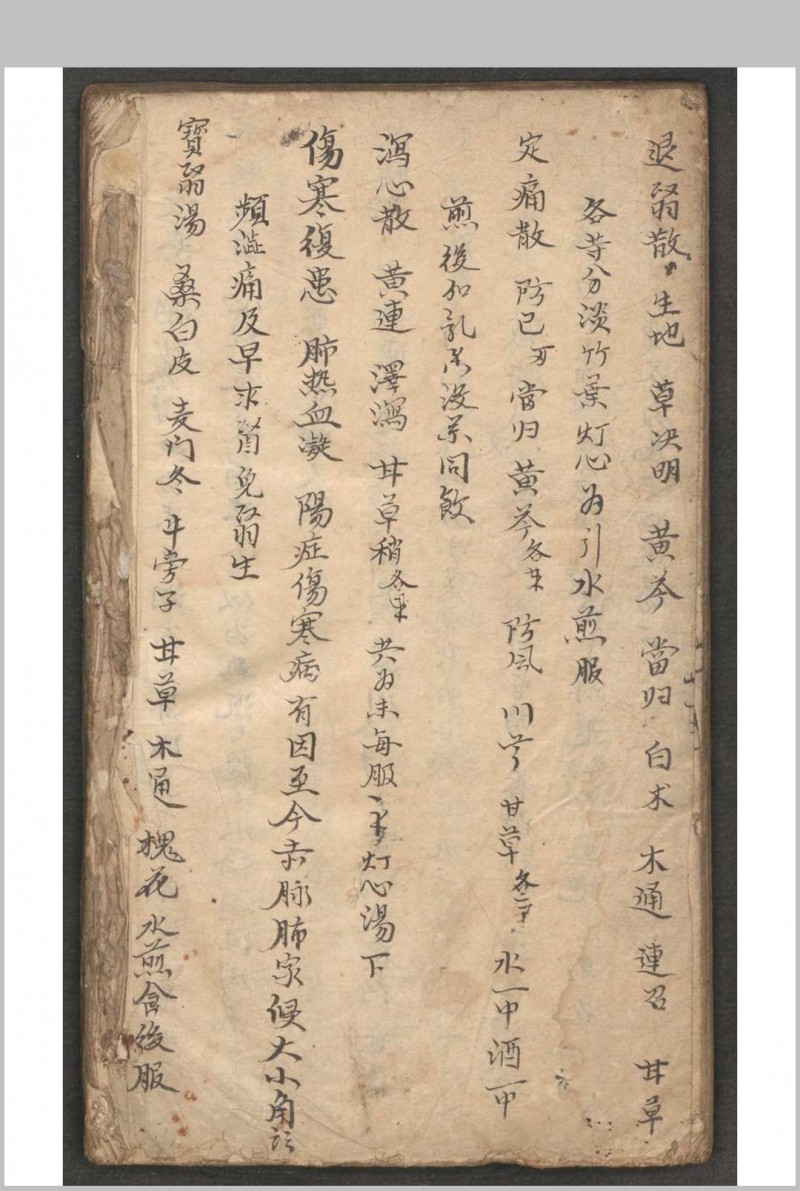 退翳散 生地 草决明 黄芩 當归 白术 木通 連召 甘草
各等分淡竹葉灯心为引水煎服
定痛散 防已 當归 黄芩各 防风 川芎 甘草各二 水一中酒一中
煎後加乳末没药同飲
瀉心散 黄連 澤瀉 甘草稍各 共为末每服 灯心湯下
傷寒復患 肺热血凝 陽症傷寒病有因至今赤脉肺家候大小角
頻澁痛及早求醫免翳生
寳翳湯 桑白皮 麦门冬 牛旁子 甘草 木通 槐花 水煎食後服